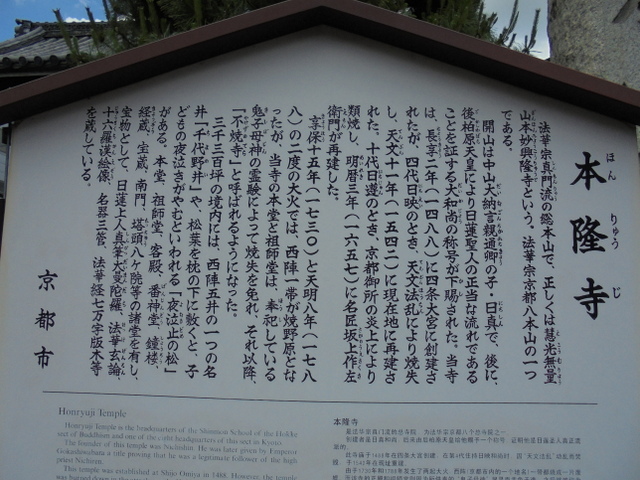 本隆寺
ほんりゅうじ
法華宗真門流の総本山で、正しくは慧光無量
山本妙興隆寺という。法華宗京都八本山の一つ
である。
開山は中山大納言親通卿の子・日真で、後に、
後柏原天皇により日蓮聖人の正当な流れである
ことを証する大和尚の称号が下賜された。当寺
は、長享二年(一四八八)に四条大宮に創建さ
れたが、四代日映のとき、天文法乱により焼失
し、天文十一年(一五四二)に現在地に再建さ
れた。十代日遵のとき、京都御所の炎上により
類焼し、明暦三年(一六五七)に名匠坂上作左
衛門が再建した。
享保十五年(一七三〇)と天明八年(一七八
八)の二度の大火では、西陣一帯が焼野原とな
ったが、当寺の本堂と祖師堂は、奉祀している
鬼子母神の霊験によって焼失を免れ、それ以降、
「不焼寺」と呼ばれるようになった。
三千三百坪の境内には、西陣五井の一つの名
井「千代野井」や、松葉を枕の下に敷くと、子
どもの夜泣きがやむといわれる「夜泣止の松」
がある。本堂、祖師堂、客殿、番神堂、鐘楼、
経蔵、宝蔵、南門、塔頭八ケ院等の諸堂を有し、
宝物として、日蓮上人真筆大曼陀羅、法華玄論、
十六羅漢絵像、名器三管、法華経七万字版木等
を蔵している。
京都市
Honryuji Temple
Honryuji Temple is the headquarters of the Shinmon School of the Hokke
sect of Buddhism and one of the eight headquarters of this sect in Kyoto.
The founder of this temple was Nichishin. He was later given by Emperor
Gokashiwabara a title proving that he was a legitimate follower of the high
priest Nichiren.
This temple was established at Shijo Omiya in 1488. However, the temple
本隆寺